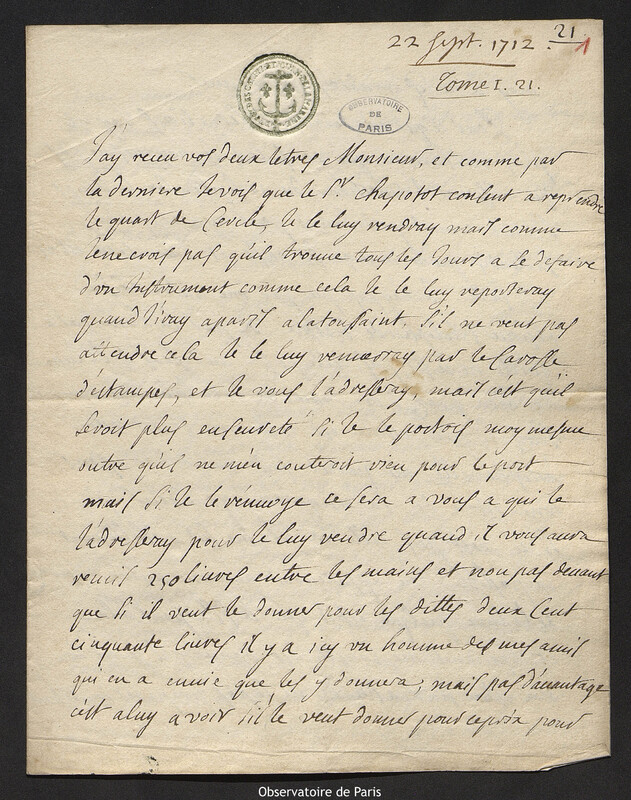 21
22 Sept. 1712. 1
Tome I. 21.
OBSERVATOIRE
DE
PARIS
J'ay receu vos deux letres Monsieur, et comme par
la derniere Je vois que le Sr. Chapotot consent a reprendre
le quart de Cercle, Je le luy rendray mais comme
Je ne crois pas qu'il trouue tous les Jours a se defaire
d'vn Instrument comme cela Je le luy reporteray
quand J'iray a paris a la toussaint. S'il ne veut pas
attendre cela Je le luy renuoyray par le Carosse
d'estampes, et Je vous l'adresseray, mais c'est qu'il
seroit plus en seureté si Je le portois moy mesme
outre qu'il ne m'en couteroit rien pour le port
mais si Je le renuoye ce sera a vous a qui Je
l'adresseray pour le luy rendre quand il vous aura
remis 250 liures entre les mains et non pas deuant
que si il veut le donner pour les dittes deux Cent
cinquante liures il y a icy vn homme de mes amis
qui en a enuie que les y donnera; mais pas d'auantage
c'est a luy a voir s'il le veut donner pour ce prix pour
Observatoire de Paris